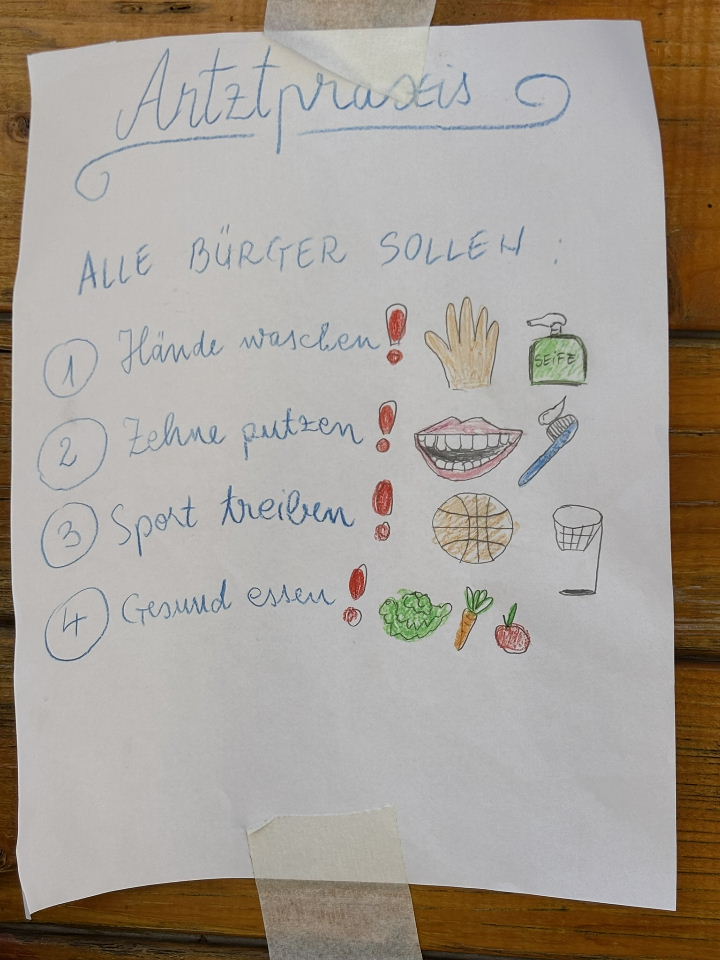 Artztpraxis
ALLE BÜRGER SOLLEN :
1 Hände waschen!
SEIFE
2 Zehne putzen!
3 Sport treiben!
4 Gesund essen!